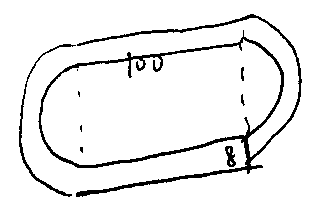 100
8